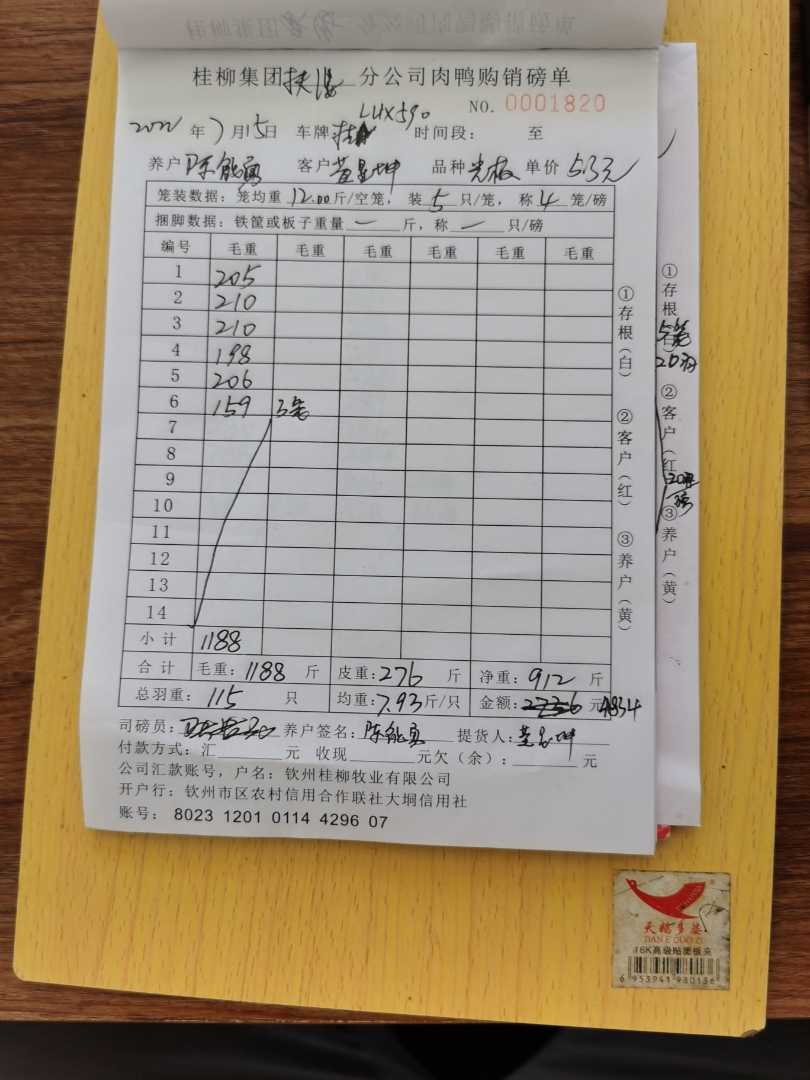 桂柳集团扶绥分公司肉鸭购销磅单
NO. 0001820
2022年7月15日 车牌桂 LUX590 时间段: 至
养户 陈能勇 客户 黄 坤 品种 光板 单价 5.3元
笼装数据: 笼均重 12.00 斤/空笼, 装 5 只/笼, 称 4 笼/磅
捆脚数据: 铁筐或板子重量 一 斤, 称 一 只/磅
编号 毛重 毛重 毛重 毛重 毛重 毛重
1 205
2 210
3 210
4 198
5 206
6 159 3笼
7
8
9
10
11
12
13
14
小计 1188
合计 毛重: 1188 斤 皮重: 276 斤 净重: 912 斤
总羽重: 115 只 均重: 7.93 斤/只 金额: 元 4834
司磅员: 养户签名: 陈能勇 提货人: 黄 坤
付款方式: 汇 元 收现 元欠(余): 元
公司汇款账号, 户名: 钦州桂柳牧业有限公司
开户行: 钦州市区农村信用合作联社大垌信用社
账号: 8023 1201 0114 4296 07
①存根(白) ②客户(红) ③养户(黄)
①存根
5笼
②客户(红
③养户(黄)
天鹅多姿
TIAN E DUO ZI
16K高级贴面板夹
6 953941 930136